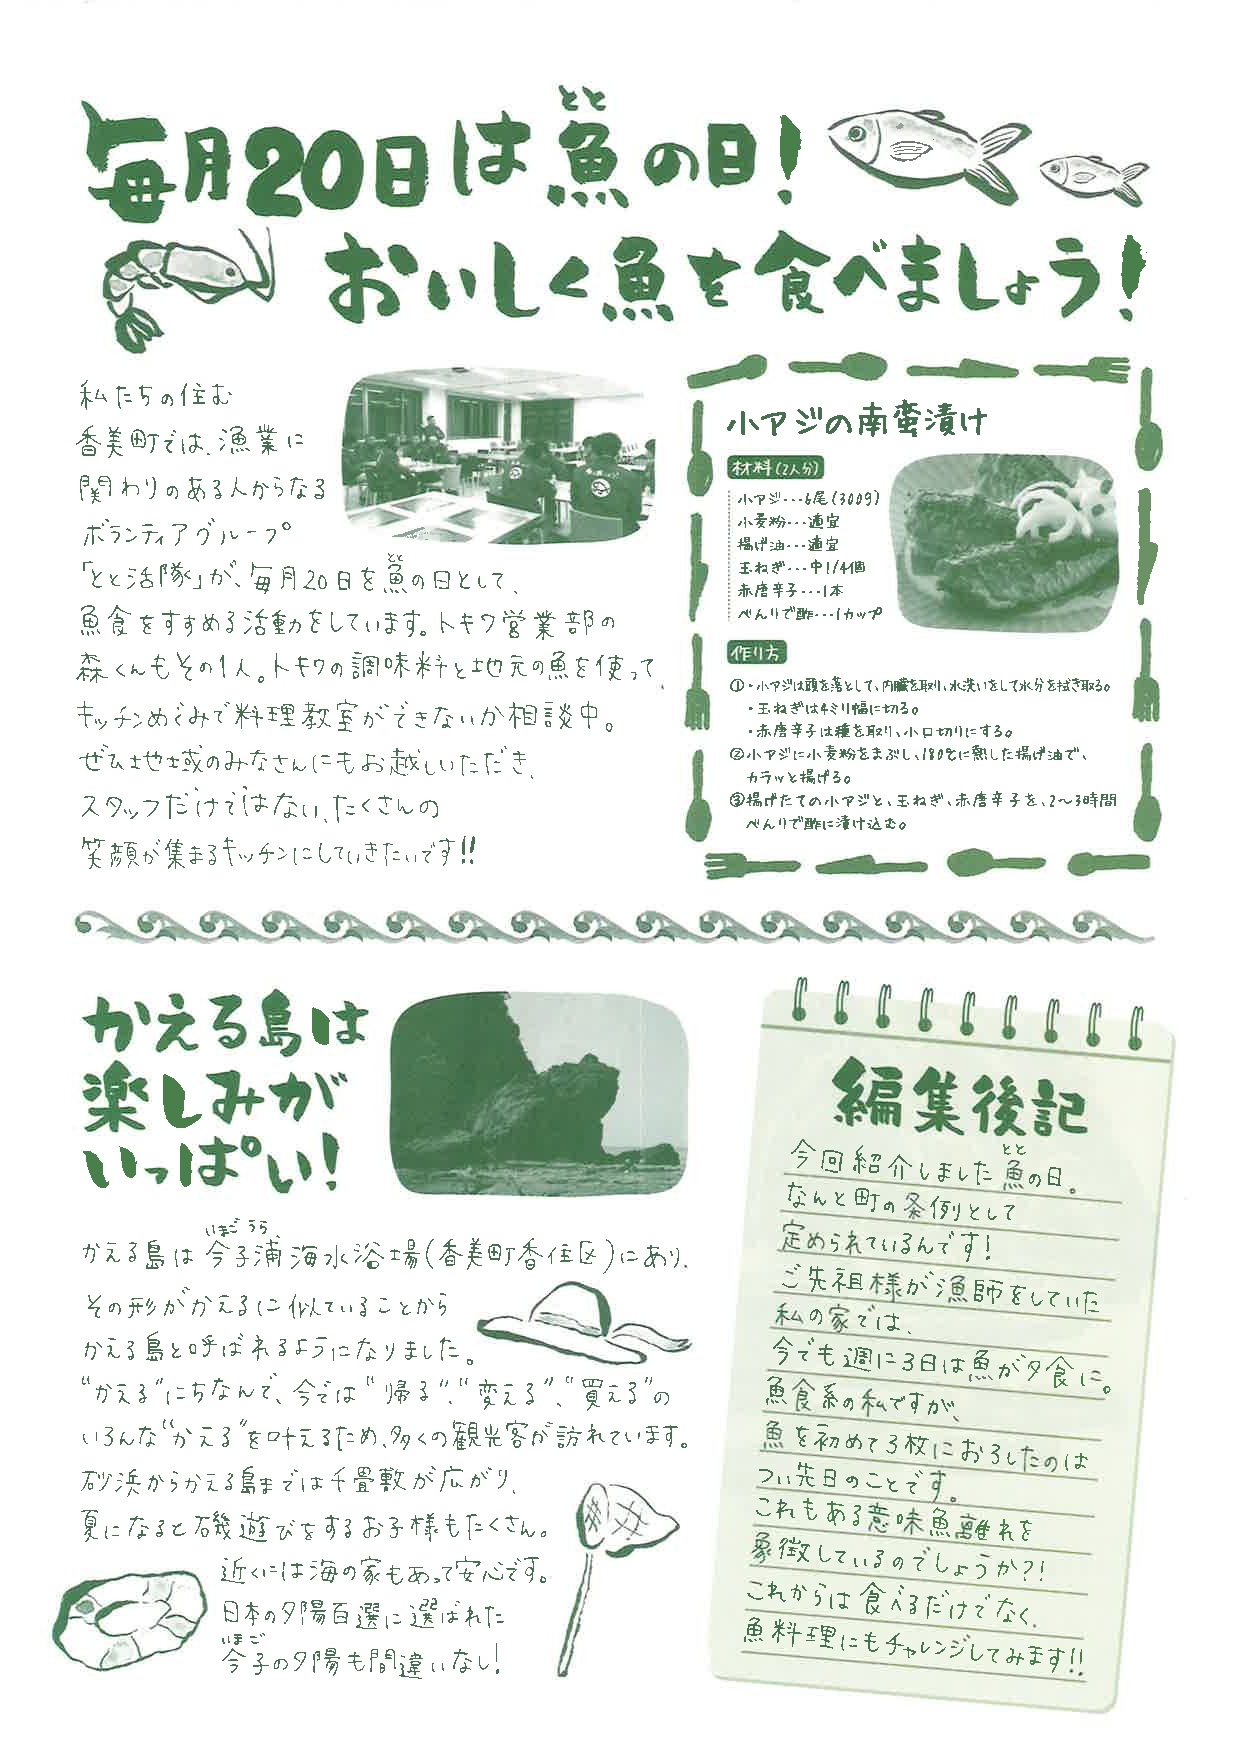 毎月20日は魚の日!
とと
おいしく魚を食べましょう!
私たちの住む
香美町では、漁業に
関わりのある人からなる
ボランティアグループ
「とと活隊」が、毎月20日を魚の日として、
とと
魚食をすすめる活動をしています。トキワ営業部の
森くんもその1人。トキワの調味料と地元の魚を使って、
キッチンめぐみで料理教室ができないか相談中。
ぜひ地域のみなさんにもお越しいただき、
スタッフだけではない、たくさんの
笑顔が集まるキッチンにしていきたいです!!
小アジの南蛮漬け
材料(2人分)
小アジ・・・6尾(300g)
小麦粉・・・適宜
揚げ油・・・適宜
玉ねぎ・・・中1/4個
赤唐辛子・・・1本
べんりで酢・・・1カップ
作り方
①・小アジは頭を落として、内臓を取り、水洗いをして水分を拭き取る。
・玉ねぎは4ミリ幅に切る。
・赤唐辛子は種を取り、小口切りにする。
②小アジに小麦粉をまぶし、180℃に熱した揚げ油で、
カラッと揚げる。
③揚げたての小アジと、玉ねぎ、赤唐辛子を、2〜3時間
べんりで酢に漬け込む。
かえる島は
楽しみが
いっぱい!
いまご うら
かえる島は今子浦海水浴場(香美町香住区)にあり、
その形がかえるに似ていることから
かえる島と呼ばれるようになりました。
“かえる”にちなんで、今では“帰る”、“変える”、“買える”の
いろんな“かえる”を叶えるため、多くの観光客が訪れています。
砂浜からかえる島までは千畳敷が広がり、
夏になると磯遊びをするお子様もたくさん。
近くには海の家もあって安心です。
日本の夕陽百選に選ばれた
いまご
今子の夕陽も間違いなし!
編集後記
今回紹介しました魚の日。
とと
なんと町の条例として
定められているんです!
ご先祖様が漁師をしていた
私の家では、
今でも週に3日は魚が夕食に。
魚食系の私ですが、
魚を初めて3枚におろしたのは
つい先日のことです。
これもある意味魚離れを
象徴しているのでしょうか?!
これからは食べるだけでなく、
魚料理にもチャレンジしてみます!!